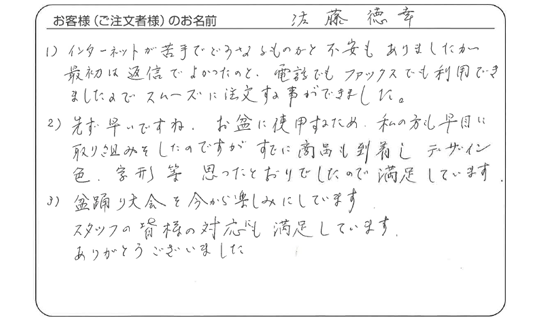 お客様（ご注文者様）のお名前 佐藤徳幸
1) インターネットが苦手でどうなるものかと不安もありましたが
最初は返信でよかったのと、電話でもファックスでも利用でき
ましたのでスムーズに注文する事ができました。
2) 先ず早いですね。お盆に使用するため、私の方も早目に
取り組みをしたのですがすでに商品も到着し デザイン
色、字形 等 思ったとおりでしたので満足しています。
3) 盆踊り大会を今から楽しみにしています
スタッフの皆様の対応にも満足しています。
ありがとうございました